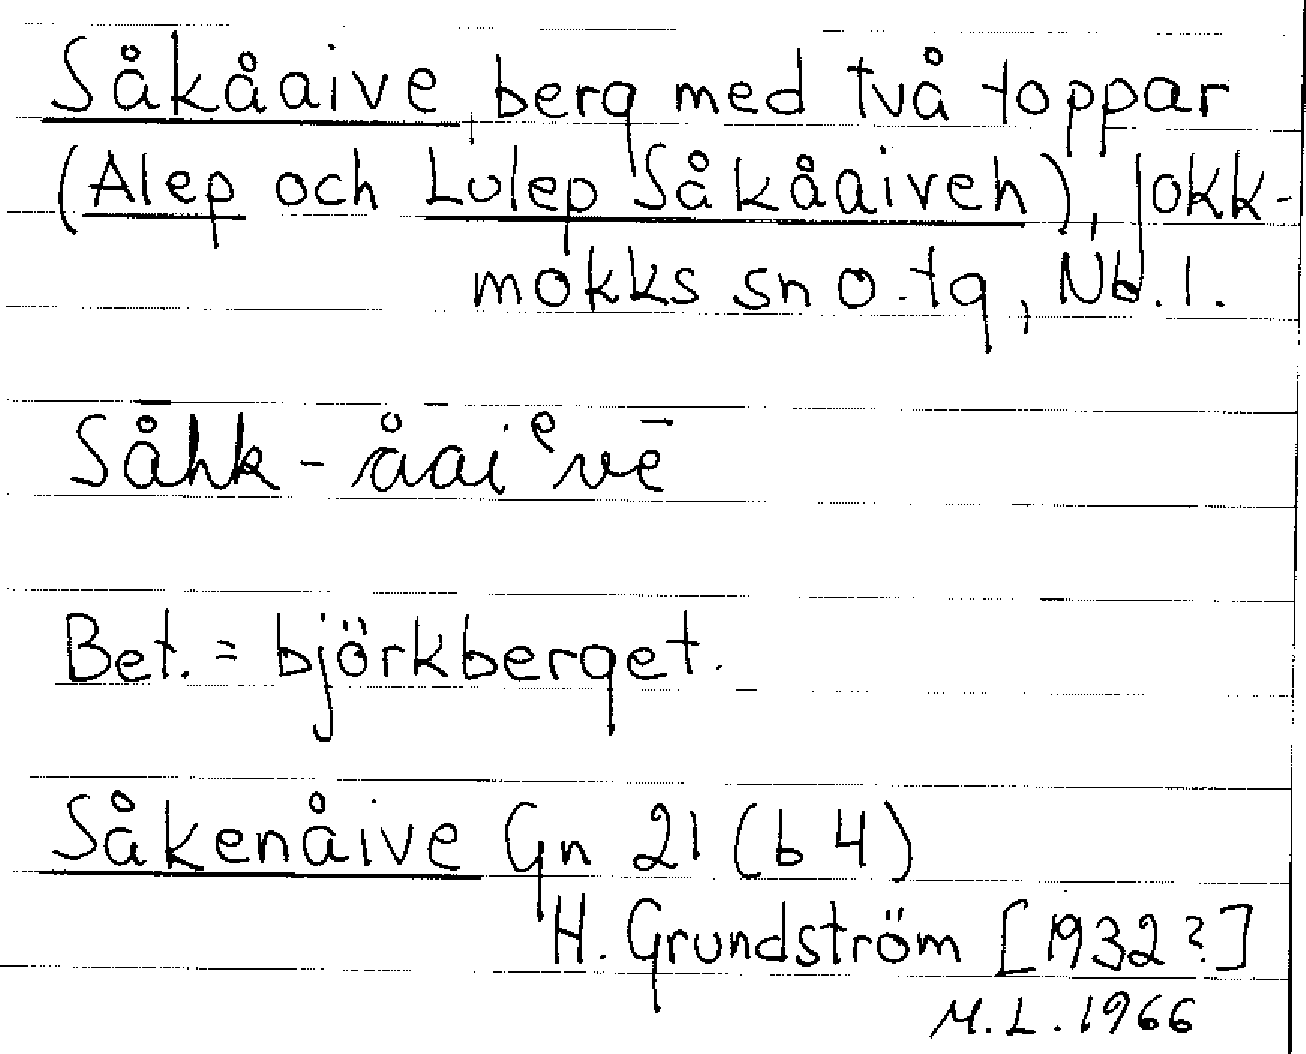 Såkåaive, berg med två toppar
(Alep och Lulep Såkåaiveh), Jokk-
mokks sn o. tg, Nb. l.
Såhk - åaiᵉvē
Bet. = björkberget.
Såkenåive Gn 21 (b 4)
H. Grundström [1932?]
M.L. 1966